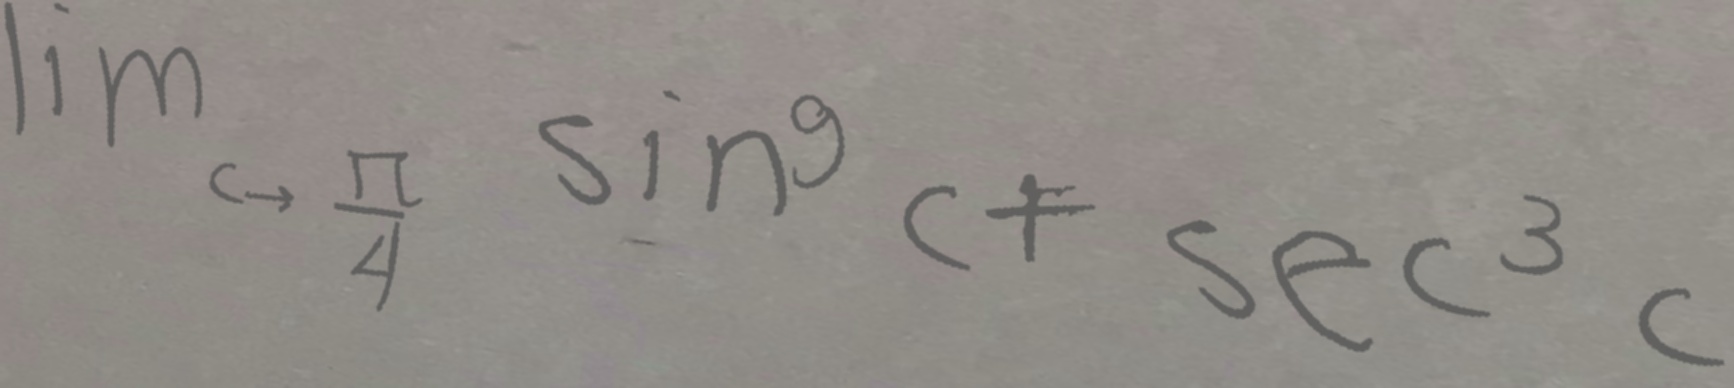 \lim_{c \to \frac{\pi}{4}} \sin^9 c + \sec^3 c